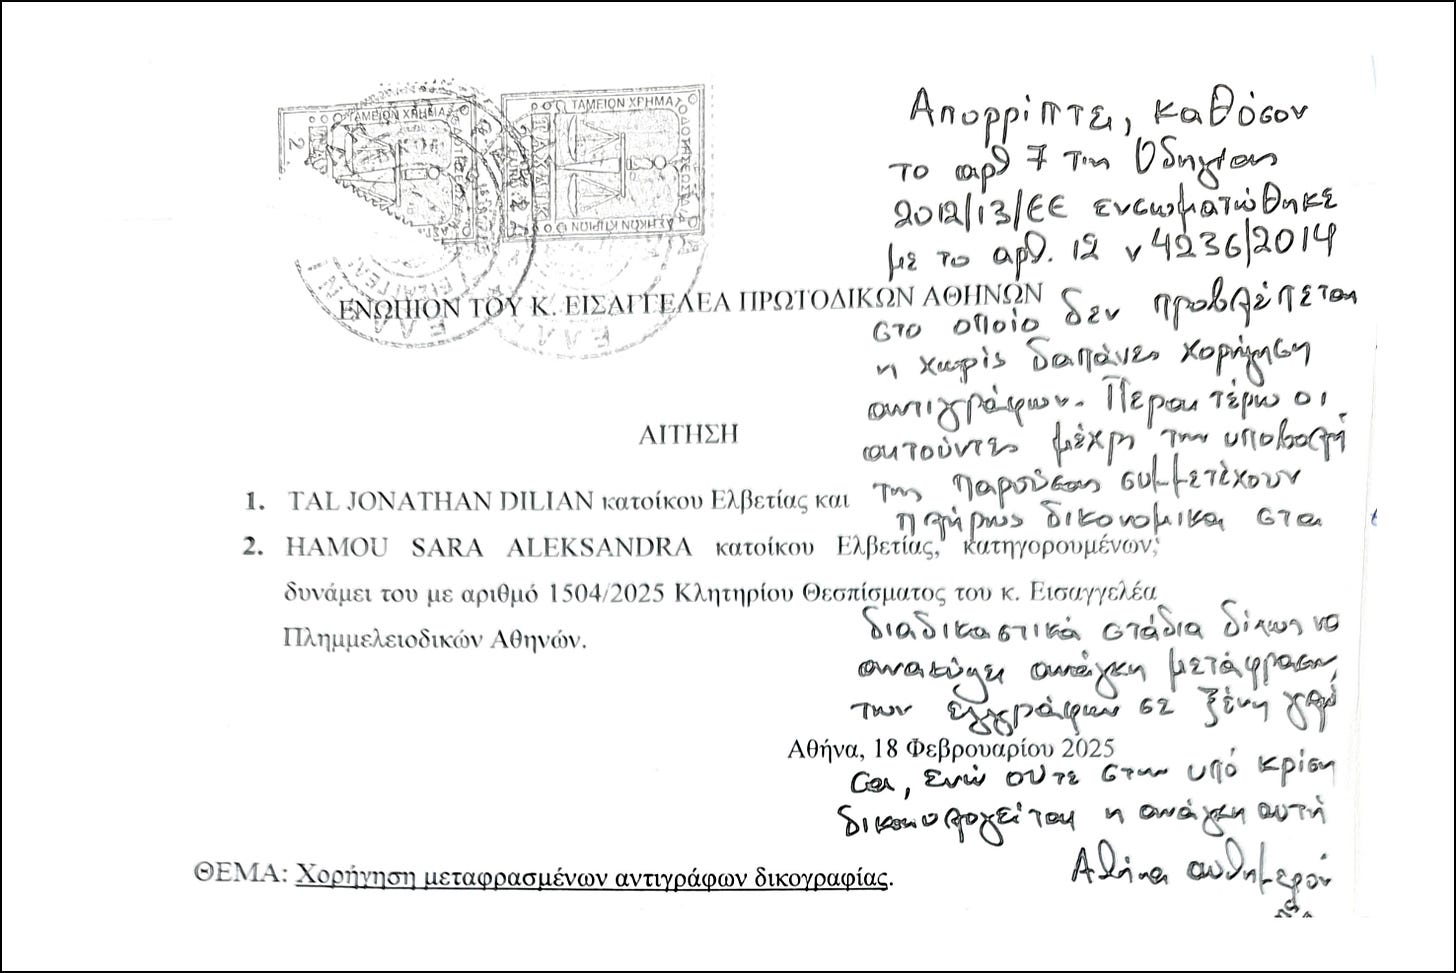 ΤΑΜΕΙΟΝ ΧΡΗΜΑΤΟΔΟΤΗΣΕΩΣ
ΕΝΩΠΙΟΝ ΤΟΥ Κ. ΕΙΣΑΓΓΕΛΕΑ ΠΡΩΤΟΔΙΚΩΝ ΑΘΗΝΩΝ
ΑΙΤΗΣΗ
1. TAL JONATHAN DILIAN κατοίκου Ελβετίας και
2. HAMOU SARA ALEKSANDRA κατοίκου Ελβετίας, κατηγορουμένων,
δυνάμει του με αριθμό 1504/2025 Κλητηρίου Θεσπίσματος του κ. Εισαγγελέα
Πλημμελειοδικών Αθηνών.
Αθήνα, 18 Φεβρουαρίου 2025
ΘΕΜΑ: Χορήγηση μεταφρασμένων αντιγράφων δικογραφίας.
Απορρίπτει, καθόσον
το αρθ 7 της Οδηγίας
2012/13/ΕΕ ενσωματώθηκε
με το αρθ. 12 ν 4236/2014
στο οποίο δεν προβλέπεται
η χωρίς δαπάνες χορήγηση
αντιγράφων. Περαιτέρω οι
αιτούντες μέχρι την υποβολή
της παρούσας συμμετέχουν
πλήρως δικονομικα στα
διαδικαστικά στάδια δίχως να
ανακύψει ανάγκη μετάφρασης
των εγγράφων σε ξένη γλώσ
σα, ενώ ουτε στην υπό κρίση
δικαιολογείται η ανάγκη αυτή
Αθήνα αυθημερόν